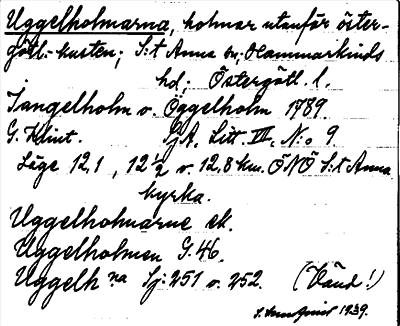 Uggelholmarna, holmar utanför öster-
götl. kusten; S:t Anna sn, Hammarkinds
hd; Östergötl. l.
Tangelholm o. Öggelholm 1789.
G. Klint. SjA. Litt. III. No 9
Läge 12,1, 12½ o. 12,8 km. ÖNÖ S:t Anna
kyrka.
Uggelholmarne ek.
Uggelholmen G. 46.
Uggelh na Sj: 251 o. 252. (Känd!)
1939.